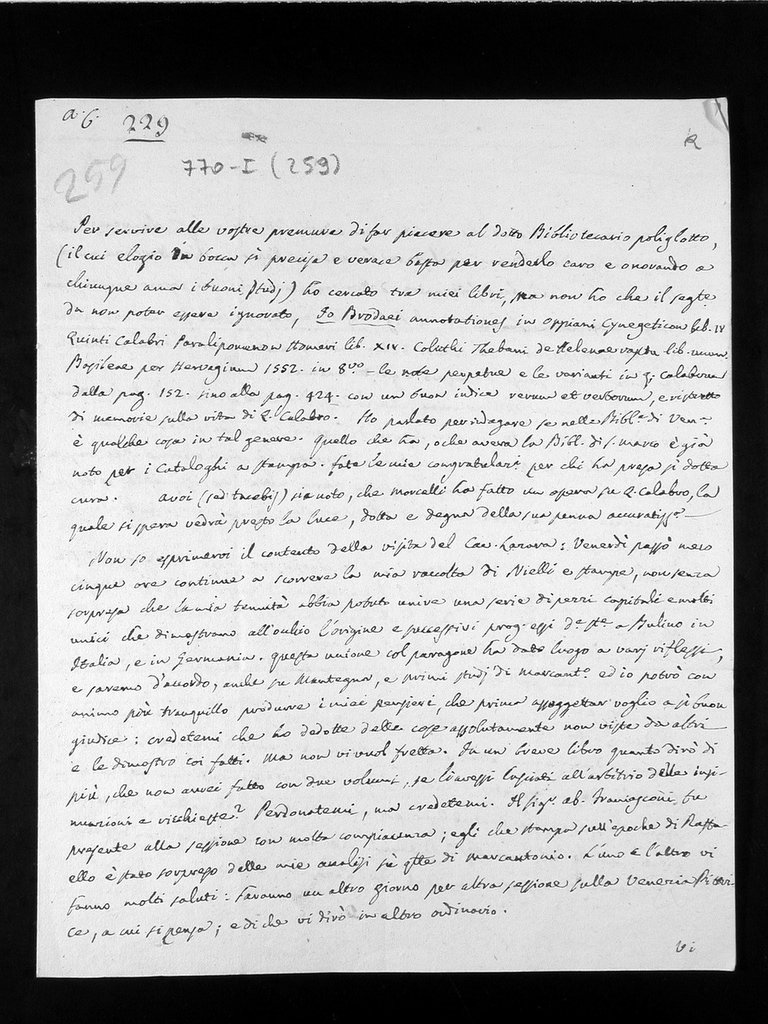 a. 6. 229
259
770-I (259)
Per servire alle vostre premure di far piacere al dotto Bibliotecario poliglotto,
(il cui elogio in bocca sì precisa e verace basta per renderlo caro e onorando a
chiunque ama i buoni studj) ho cercato tra miei libri, ma non ho che il segte
da non poter essere ignorato, Jo Brodaei annotationes in Oppiani Cynegeticon lib. IV
Quinti Calabri Paralipomenon Homeri lib. XIV. Coluthi Thebani de Helenae raptu lib. unum.
Basileae per Hervagium 1552. in 8vo - le note perpetue e le varianti in Q. Calabrum
dalla pag. 152. sino alla pag. 424. con un buon indice rerum et verborum, e ristretto
di memorie sulla vita di Q. Calabro. Ho parlato per indagare se nelle Bibl.e di Ven.a
è qualche cosa in tal genere. Quello che ha, o che aveva la Bibl. di S. Marco è già
noto per i Cataloghi a stampa. fate le mie congratulaz.i per chi ha presa sì dotta
cura. A voi (sed tacebis) sia noto, che Morcelli ha fatto un opera su Q. Calabro, la
quale si spera vedrà presto la luce, dotta e degna della sua penna accuratiss.a
Non so esprimervi il contento della visita del Cav. Lazara: Venerdì passò meco
cinque ore continue a scorrere la mia raccolta di Nielli e stampe, non senza
sorpresa che la mia tenuità abbia potuto unire una serie di pezzi capitali e molti
unici che dimostrano all'occhio l'origine e successivi progressi d.e st.e a Bulino in
Italia, e in Germania. questa unione col paragone ha dato luogo a varj riflessi,
e saremo d'accordo, anche su Mantegna, e primi studj di Marcant.o ed io potrò con
animo più tranquillo produrre i miei pensieri, che prima assoggettar voglio a sì buon
giudice: credetemi che ho dedotte delle cose assolutamente non viste da altri
e le dimostro coi fatti. Ma non vi vuol fretta. In un breve libro quanto dirò di
più, che non avrei fatto con due volumi, se li avessi lasciati all'arbitrio delle insi-
nuazioni e ricchieste? Perdonatemi, ma credetemi. Il Sig.r ab. Framasconi, fu
presente alla sessione con molta compiacenza; egli che stampa sull'epoche di Raffa-
ello è stato sorpreso delle mie analisi su qlle di Marcantonio. L'uno e l'altro vi
fanno molti saluti: saranno un altro giorno per altra sessione sulla Venezia Pittri-
ce, a cui si pensa; e di che vi dirò in altro ordinario.
Vi